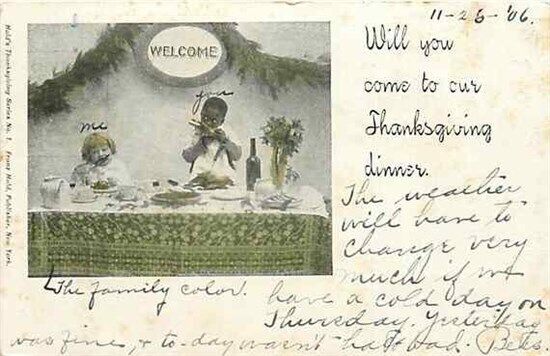 11-25-'06.
Huld's Thanksgiving Series No. 1. Franz Huld, Publisher, New York.
WELCOME
you
me
Will you
come to our
Thanksgiving
dinner.
The weather
will have to
change very
much if we
have a cold day on
Thursday. Yesterday
was fine, & to-day wasn't half bad.
The family color.